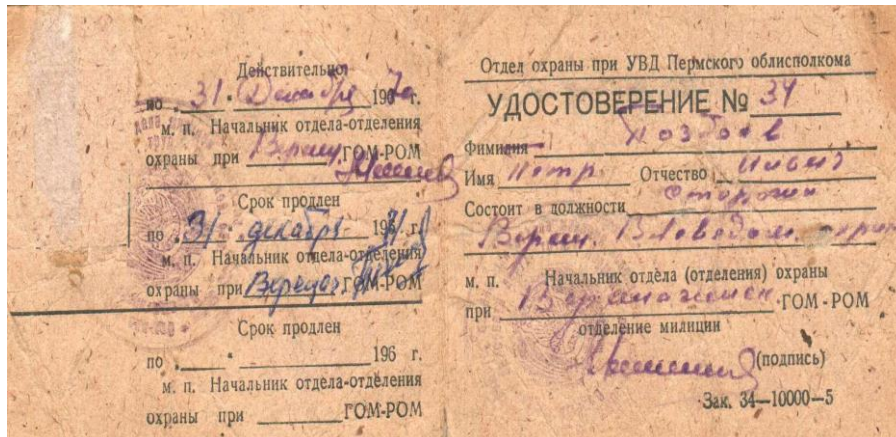 Действительно
по „31“ Декабря 1970 г.
м. п. Начальник отдела-отделения
охраны при Верещ. ГОМ-РОМ
Срок продлен
по „31“ декабря 1971 г.
м. п. Начальник отдела-отделения
охраны при Верещаг. ГОМ-РОМ
Срок продлен
по „ “ 196 г.
м. п. Начальник отдела-отделения
охраны при ГОМ-РОМ
Отдел охраны при УВД Пермского облисполкома
УДОСТОВЕРЕНИЕ № 34
Фимилия
Имя Петр. Отчество Ильич
Состоит в должности Сторожа
Верещ. Вневедом. охраны
м. п. Начальник отдела (отделения) охраны
при Верещагинском ГОМ - РОМ
отделение милиции
(подпись)
Зак. 34—10000—5